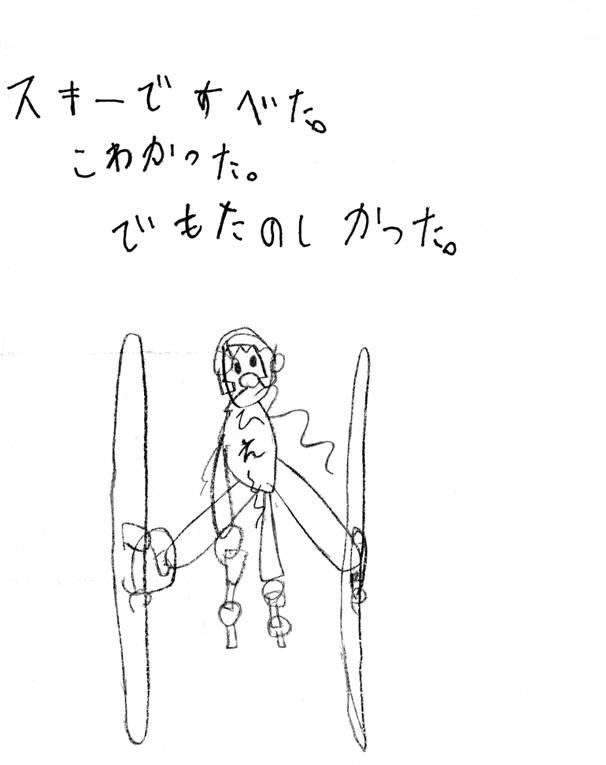 スキーですべた。
こわかった。
でもたのしかった。
ひえ〜